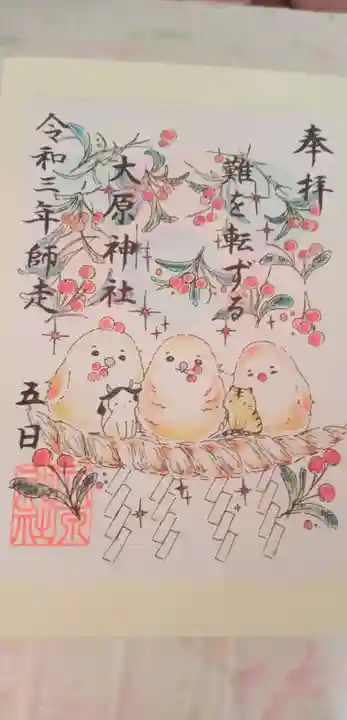 奉拝
難を転ずる
大原神社
令和三年師走
五日